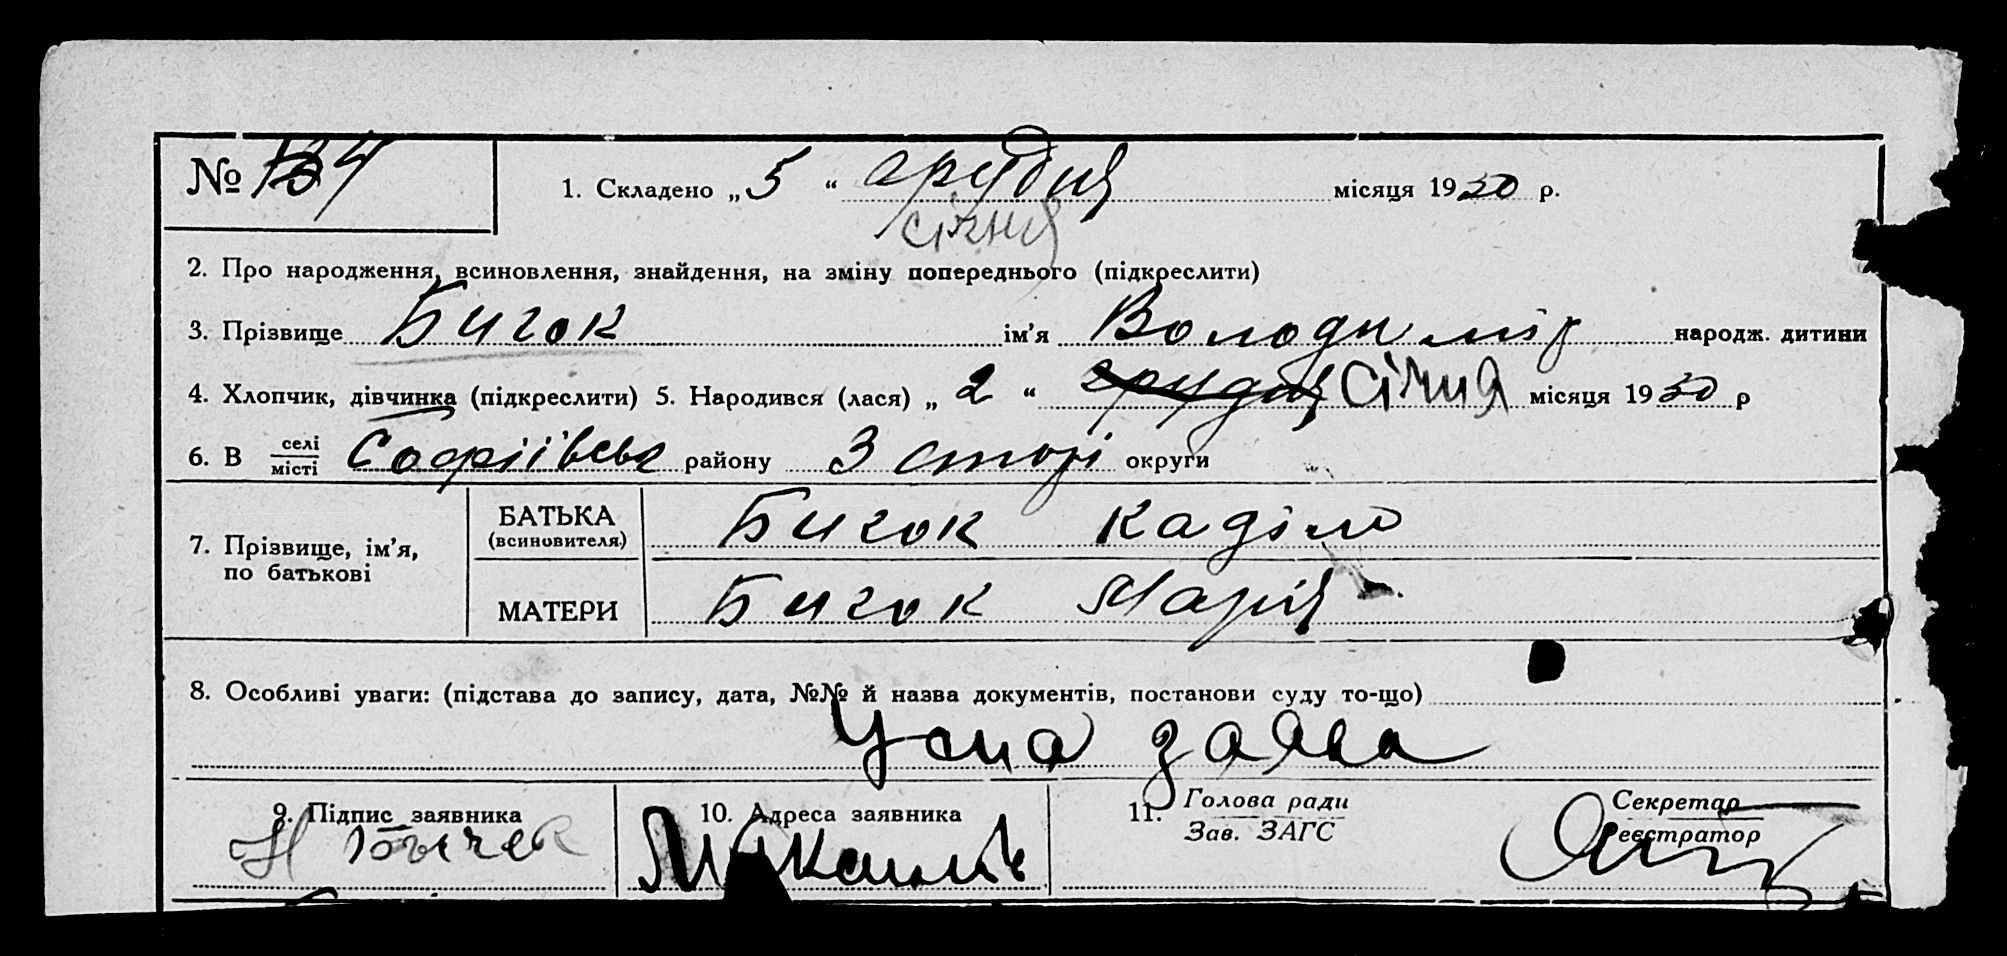 № 134 1. Складено „ 5 “ грудня місяця 1930 р.
січня
2. Про народження, всиновлення, знайдення, на зміну попереднього (підкреслити)
3. Прізвище Бигок ім’я Володимір народж. дитини
4. Хлопчик, дівчинка (підкреслити) 5. Народився (лася) „ 2 “ грудня січня місяця 1930 р
6. В селі місті Софіївськ району З сторі округи
7. Прізвище, ім’я, по батькові
БАТЬКА (всиновителя) Бигок
МАТЕРИ Бигок Марія
8. Особливі уваги: (підстава до запису, дата, №№ й назва документів, постанови суду то-що)
Усна заява
9. Підпис заявника 10. Адреса заявника 11. Голова ради Секретар
Зав. ЗАГС Реєстратор